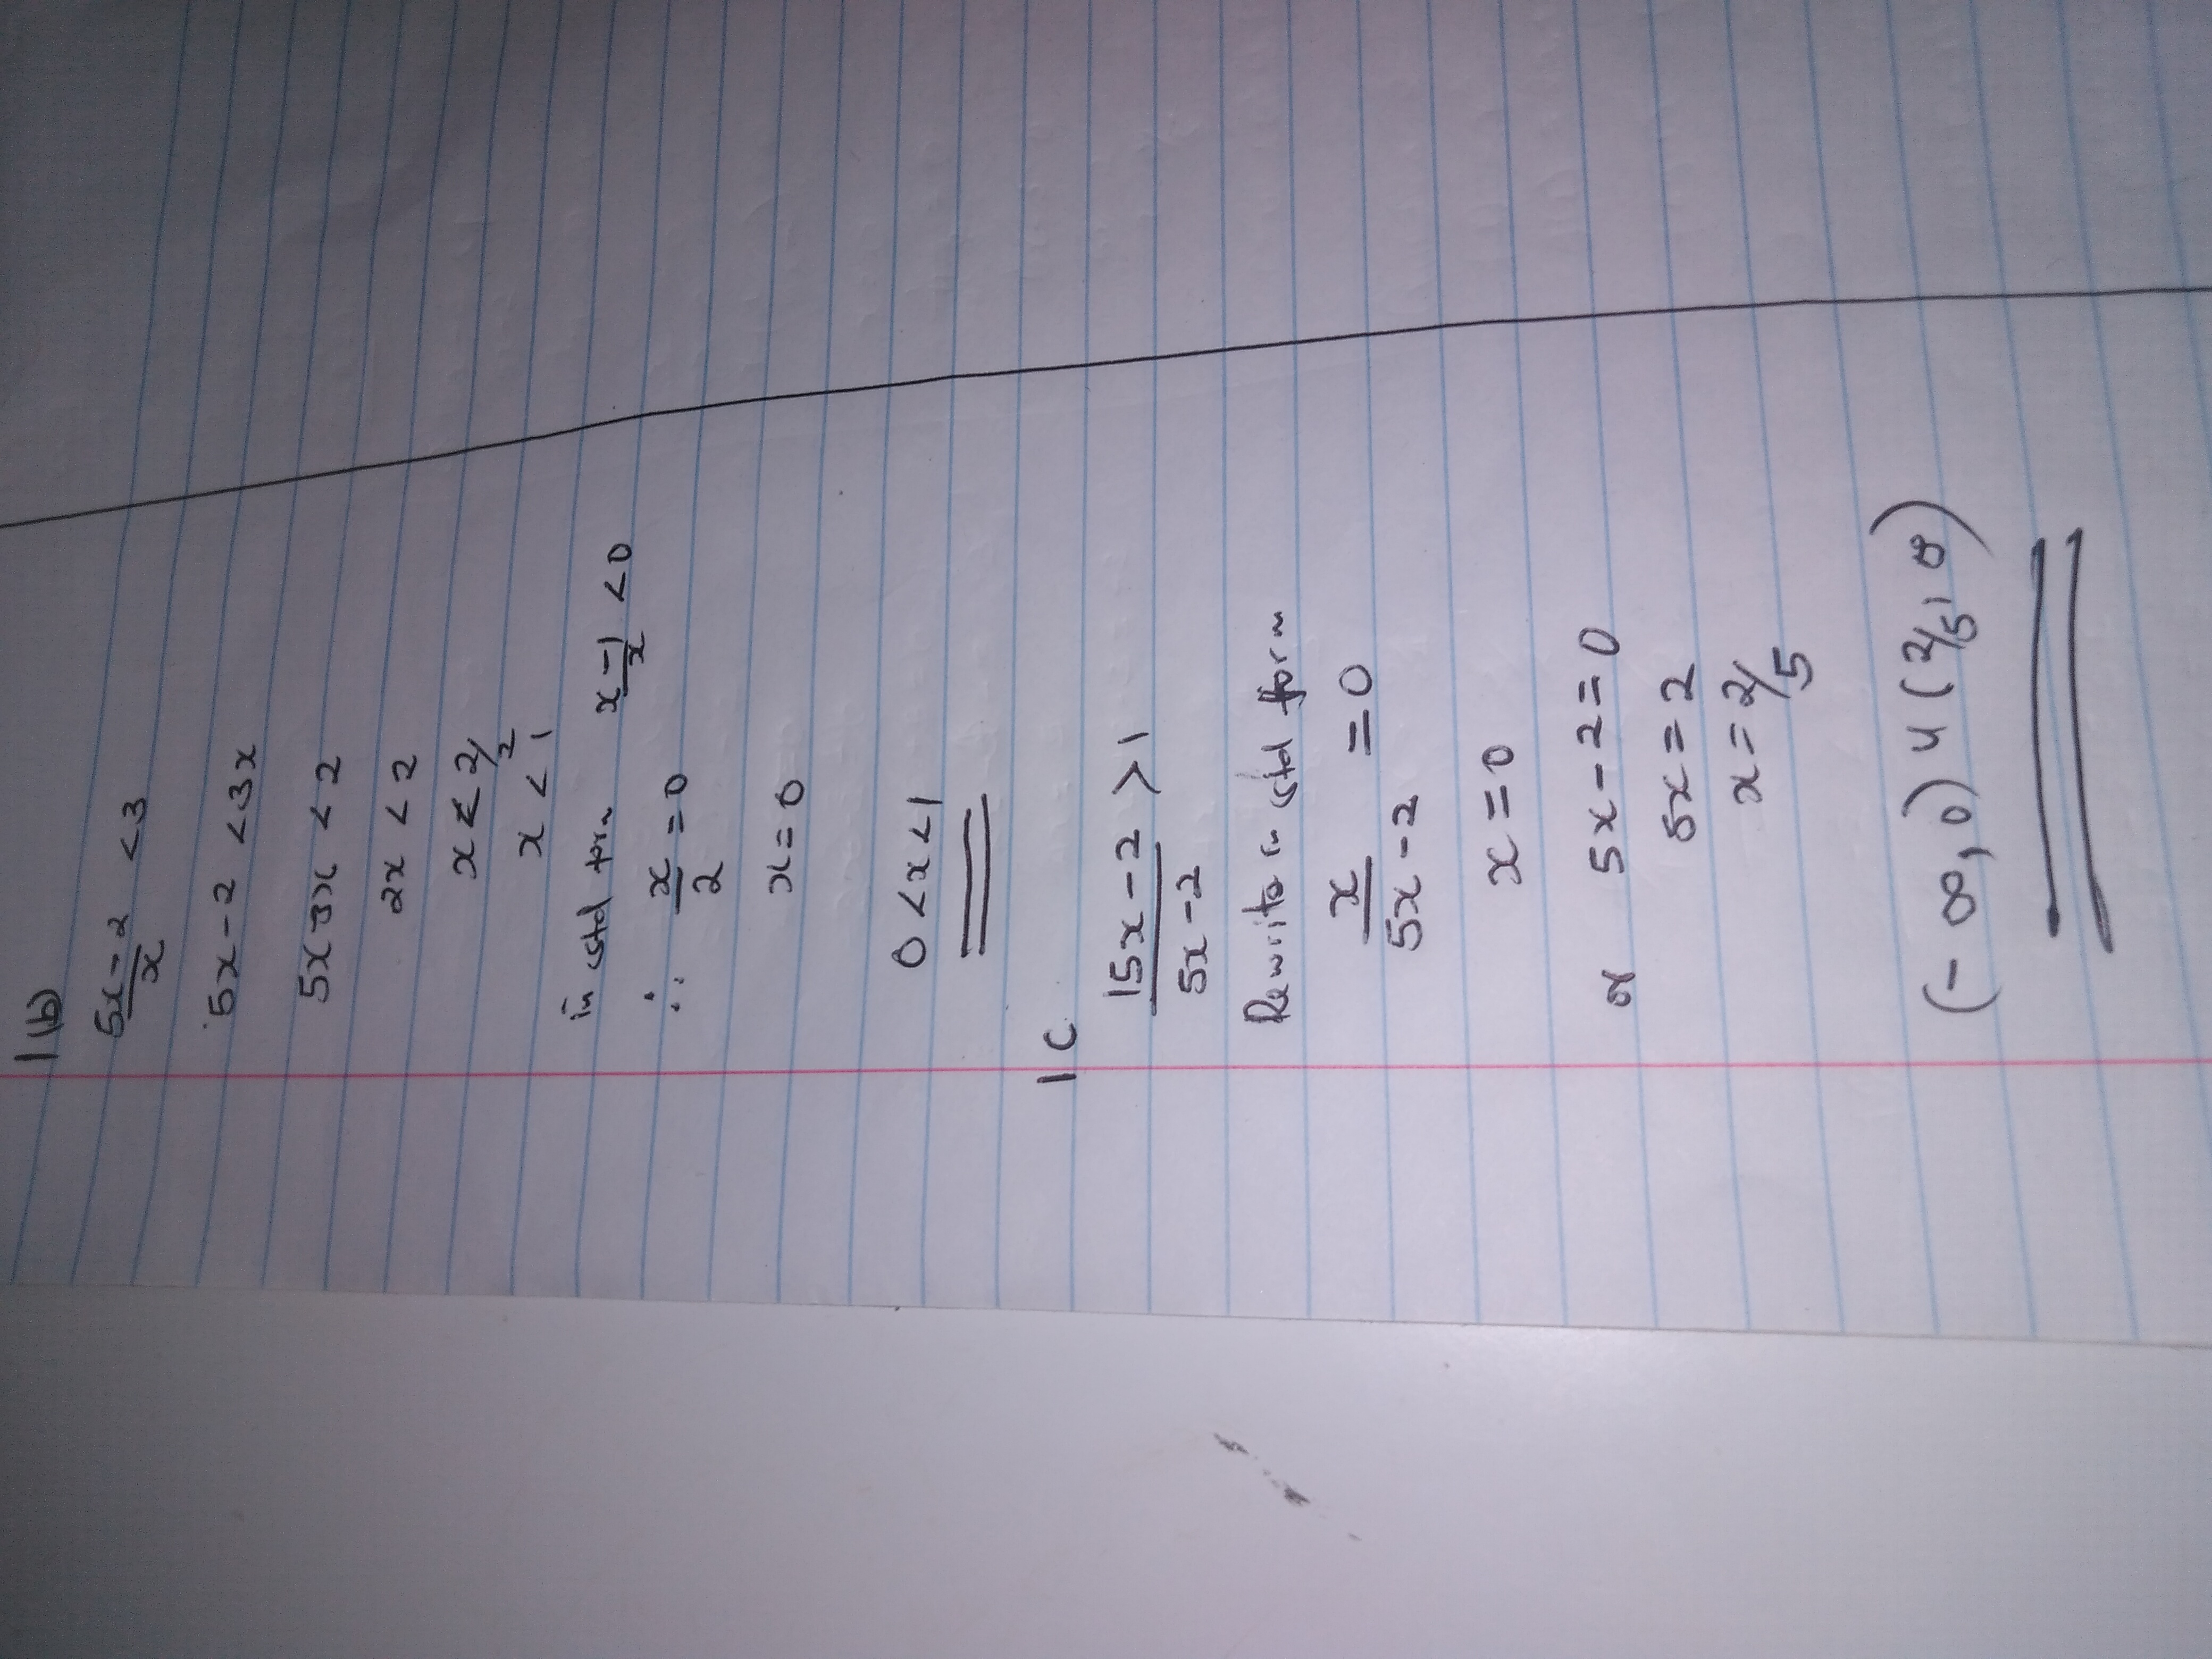 1(b)
5x-2/x <3
5x-2 <3x
5x-3x <2
2x <2
x < 2/2
x < 1
in std frm x-1/x <0
∴ x/2 =0
x=0
0<x<1
1C
15x-2/5x-2 >1
Rewrite in std form
x/5x-2 =0
x=0
or 5x-2=0
5x=2
x=2/5
(-∞,0) u (2/5, ∞)